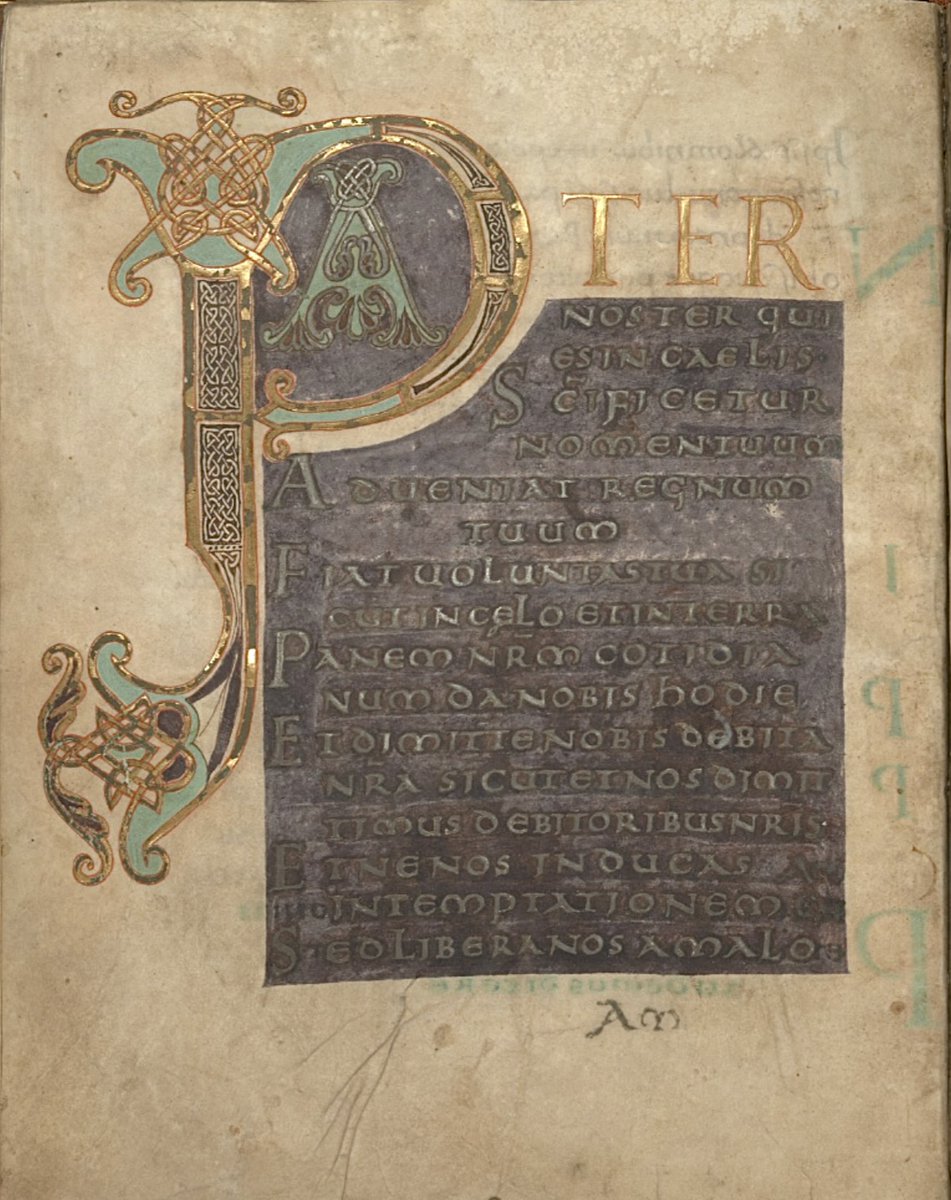 PATER
NOSTER QUI
ES IN CAELIS
SCIFICETUR
NOMEN TUUM
ADUENIAT REGNUM
TUUM
FIAT UOLUNTAS TUA SI
CUT IN CELO ET IN TERRA
PANEM NRM COTIDIA
NUM DA NOBIS HODIE
ET DIMITTE NOBIS DEBITA
NRA SICUT ET NOS DIMIT
TIMUS DEBITORIBUS NRIS
ET NE NOS INDUCAS
IN TEMPTATIONEM
SED LIBERA NOS A MALO
Am